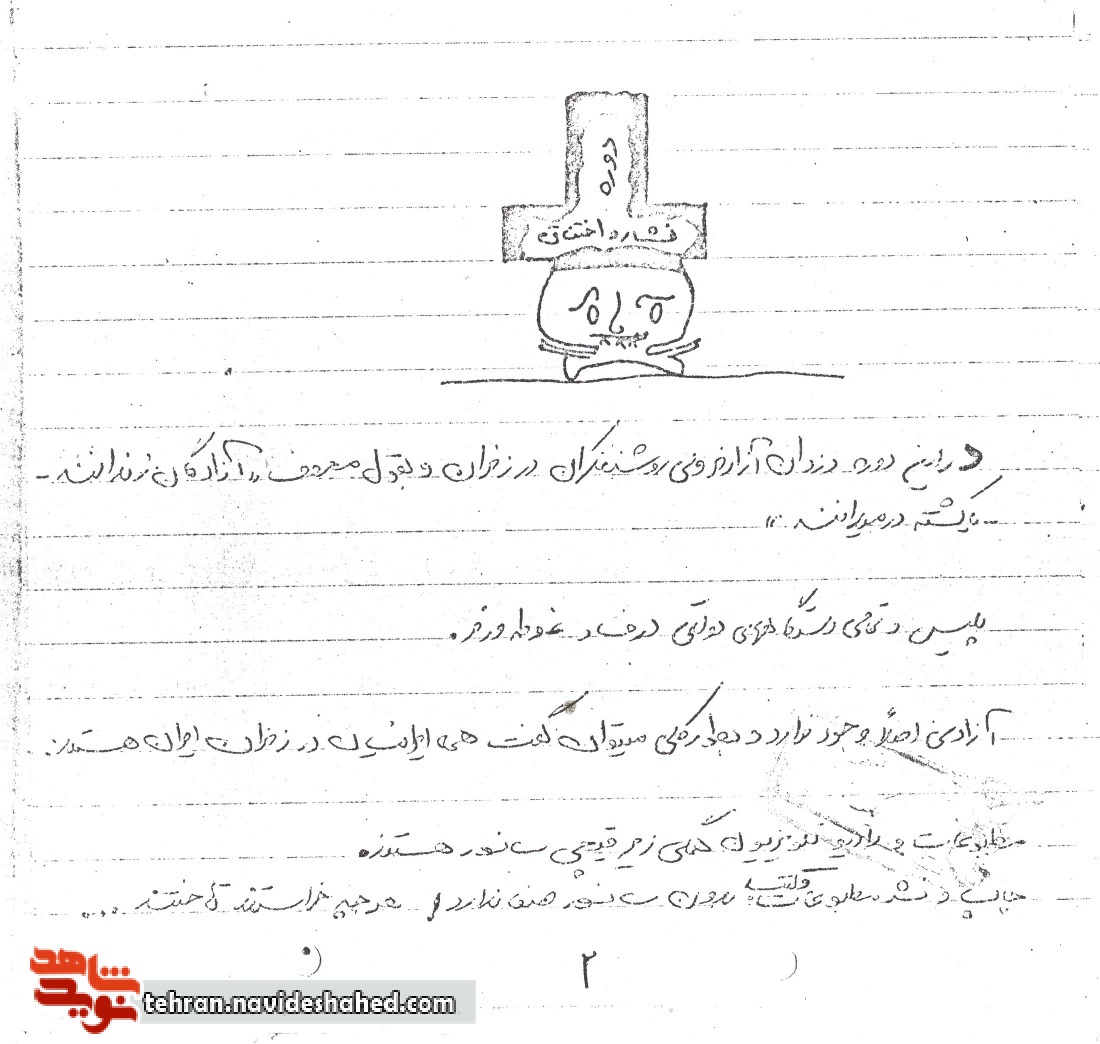 دوره
فشار و اختناق
در این دوره دزدان آزاد ولی روشنفکران در زندان و بقول معروف «آزادگان زندانند -
- یا کشته در میدانند »
پلیس و تمامی دستگاههای دولتی در فساد غوطه ورند.
آزادی اصلاً وجود ندارد و بطور کلی میتوان گفت همه ایرانیان در زندان ایران هستند.
مطبوعات و رادیو تلویزیون همگی زیر قیچی سانسور هستند.
چاپ و نشر مطبوعات و کتب بدون سانسور معنی ندارد هر چه خواستند تاختند ...
۲
شاهد
نوید
tehran.navideshahed.com